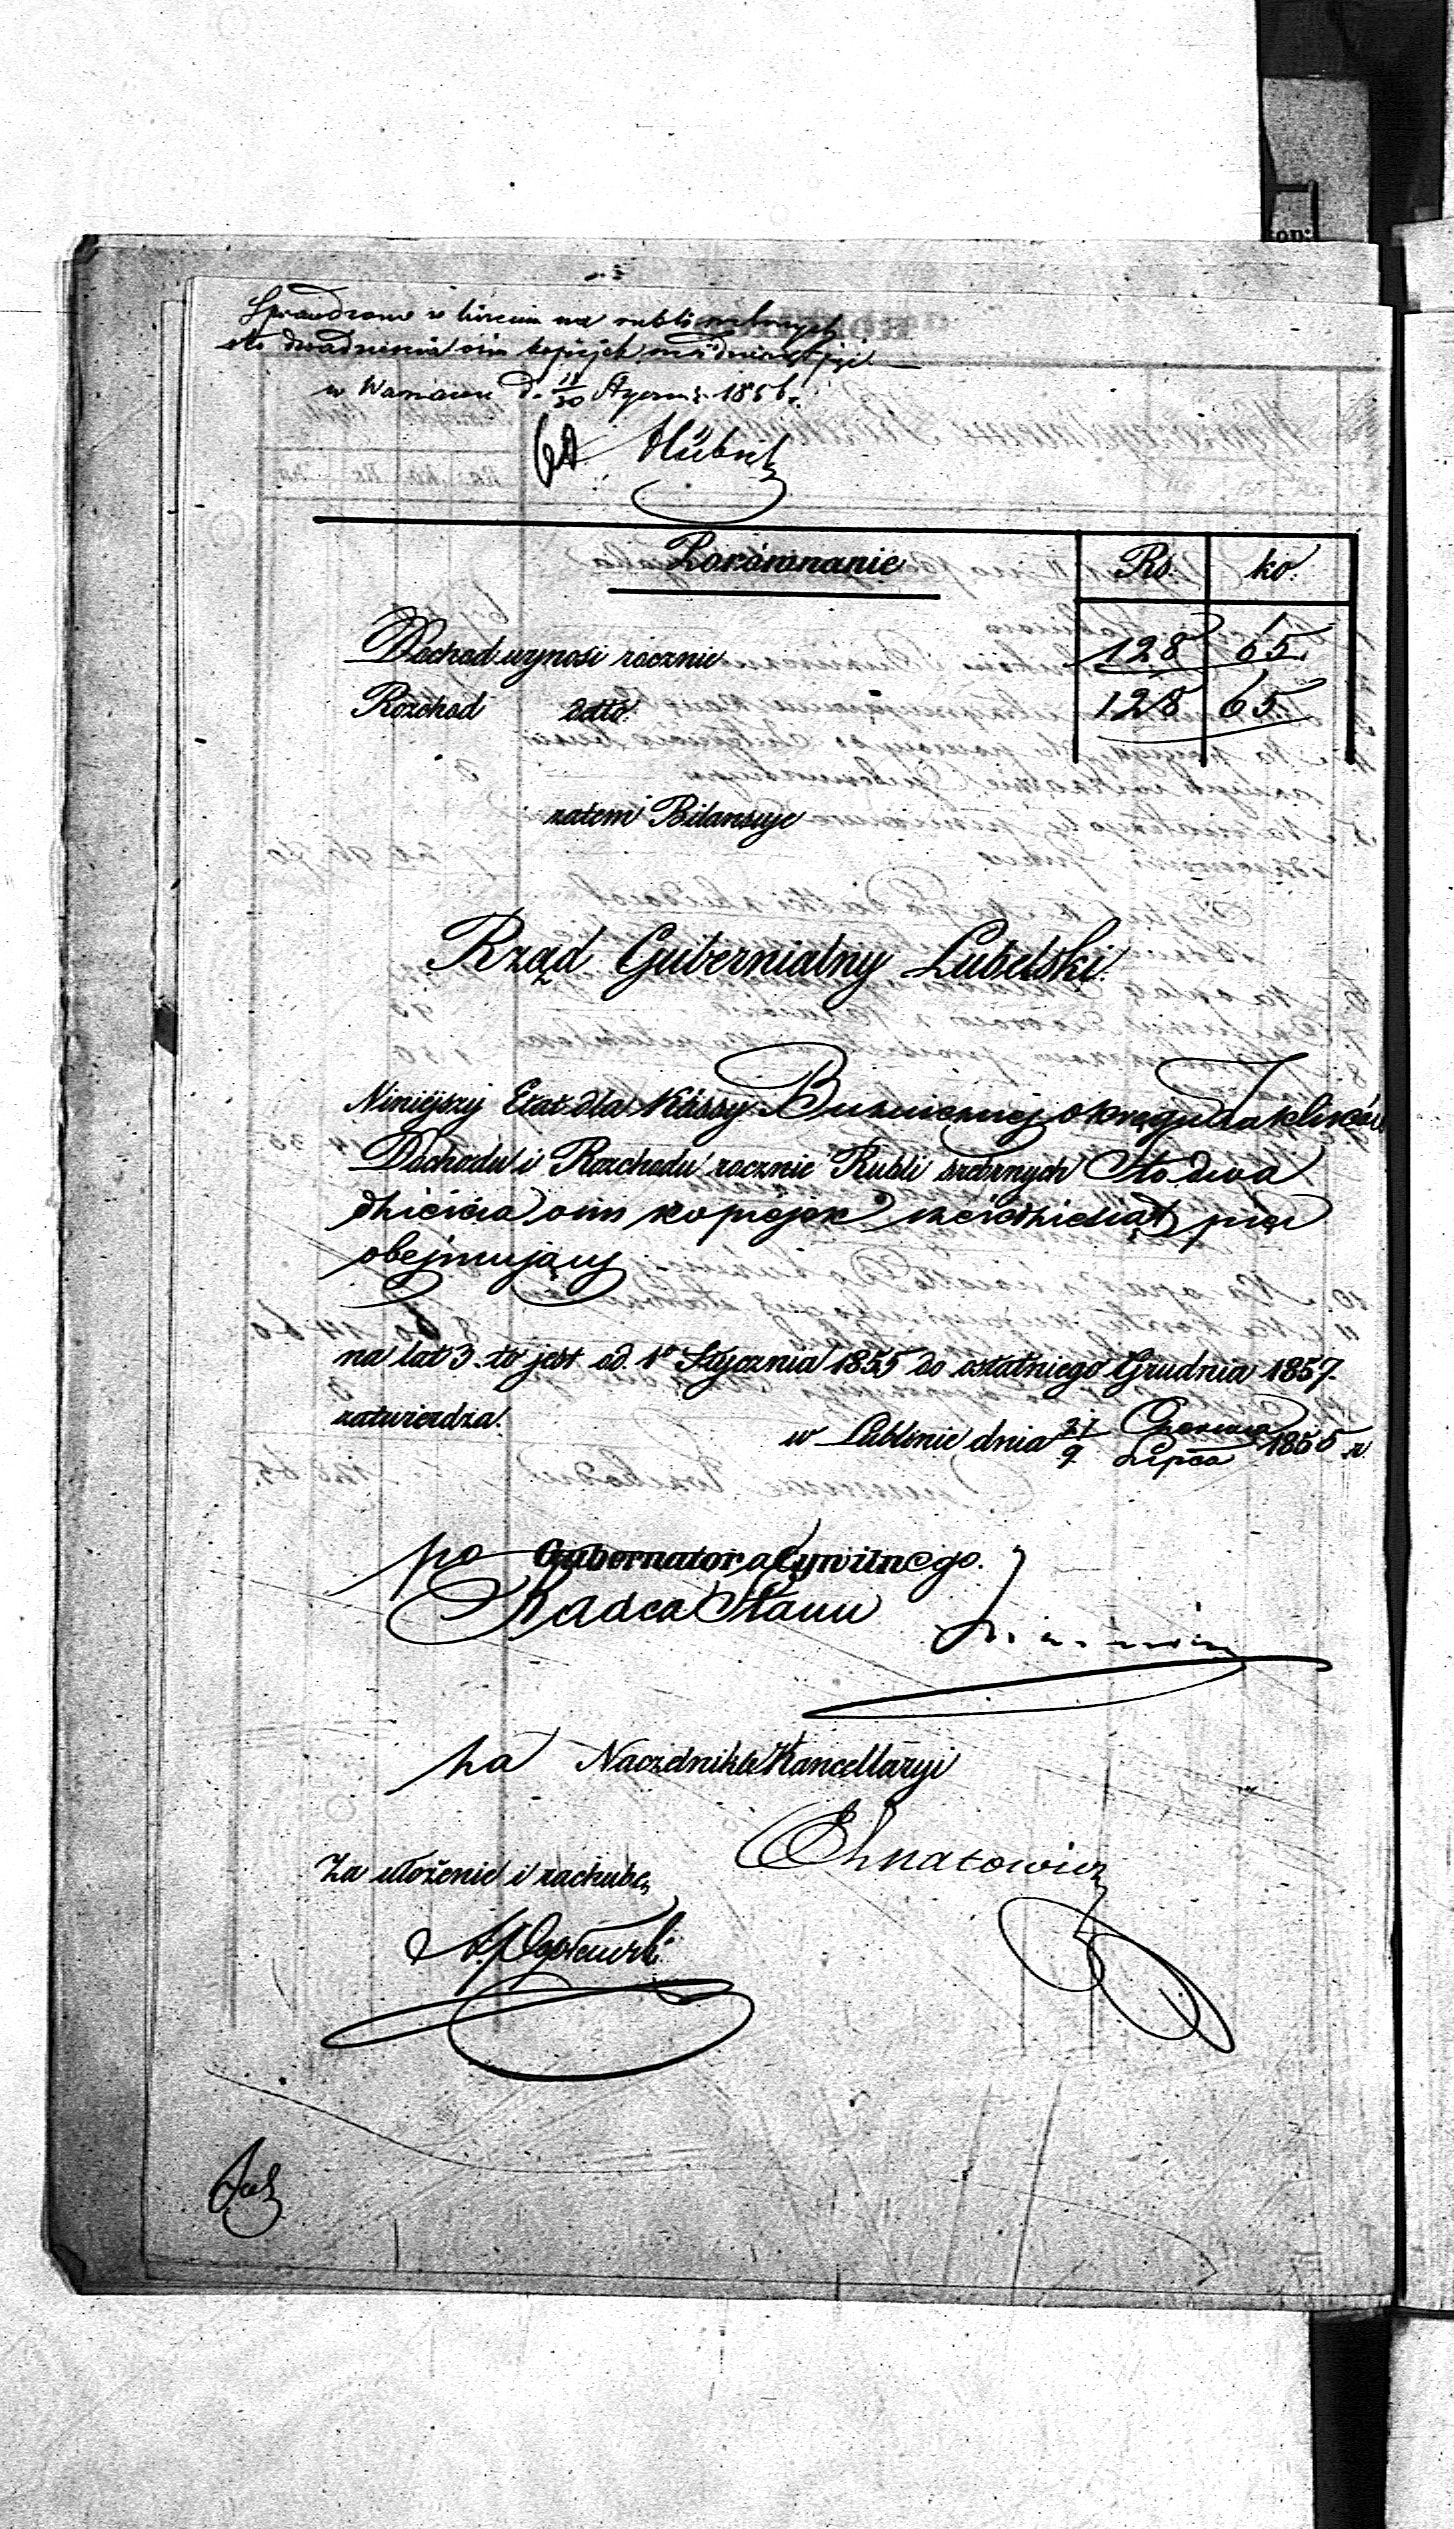 Sprawdzono w liczeniu na rubli srebrnych
sto dwadzieścia osim kopiejek sześćdziesiąt pięć.
w Warszawie d. 18/30 Stycznia 1856 r.
Hübner
Porównanie Rs. ko.
Dochod wynosi rocznie 128 65.
Rozchod detto. 128 65.
zatem Bilansuje
Rząd Gubernialny Lubelski.
Niniejszy Etat dla Kassy Bużnicznej okręgu Zaklików
Dochodu i Rozchodu rocznie Rubli srebrnych Sto dwa
dzieścia osim kopiejek sześćdziesiąt pięć
obejmujący
na lat 3. to jest od 1o Stycznia 1855 do ostatniego Grudnia 1857.
zatwierdza.
w Lublinie dnia 27 Czerwca / 9 Lipca 1855 r.
po Gubernatora Cywilnego.
Radca Stanu
za Naczelnika Kancellaryi
Ihnatowicz
Za ułożenie i rachubę